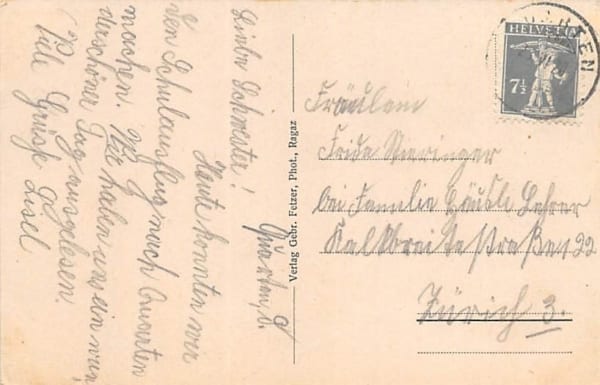 Quarten, d.
Liebe Schwester!
Heute konnten wir
den Schulausflug nach Quarten
machen. Wir haben uns ein wun-
derschöner Tag ausgelesen.
Viele Grüsse Lisel
Verlag Gebr. Fetzer, Phot., Ragaz
HELVETIA
7½
Fräulein
Frida
bei Familie Häusli Lehrer
Kalkbreitestraße 22
Zürich 3.